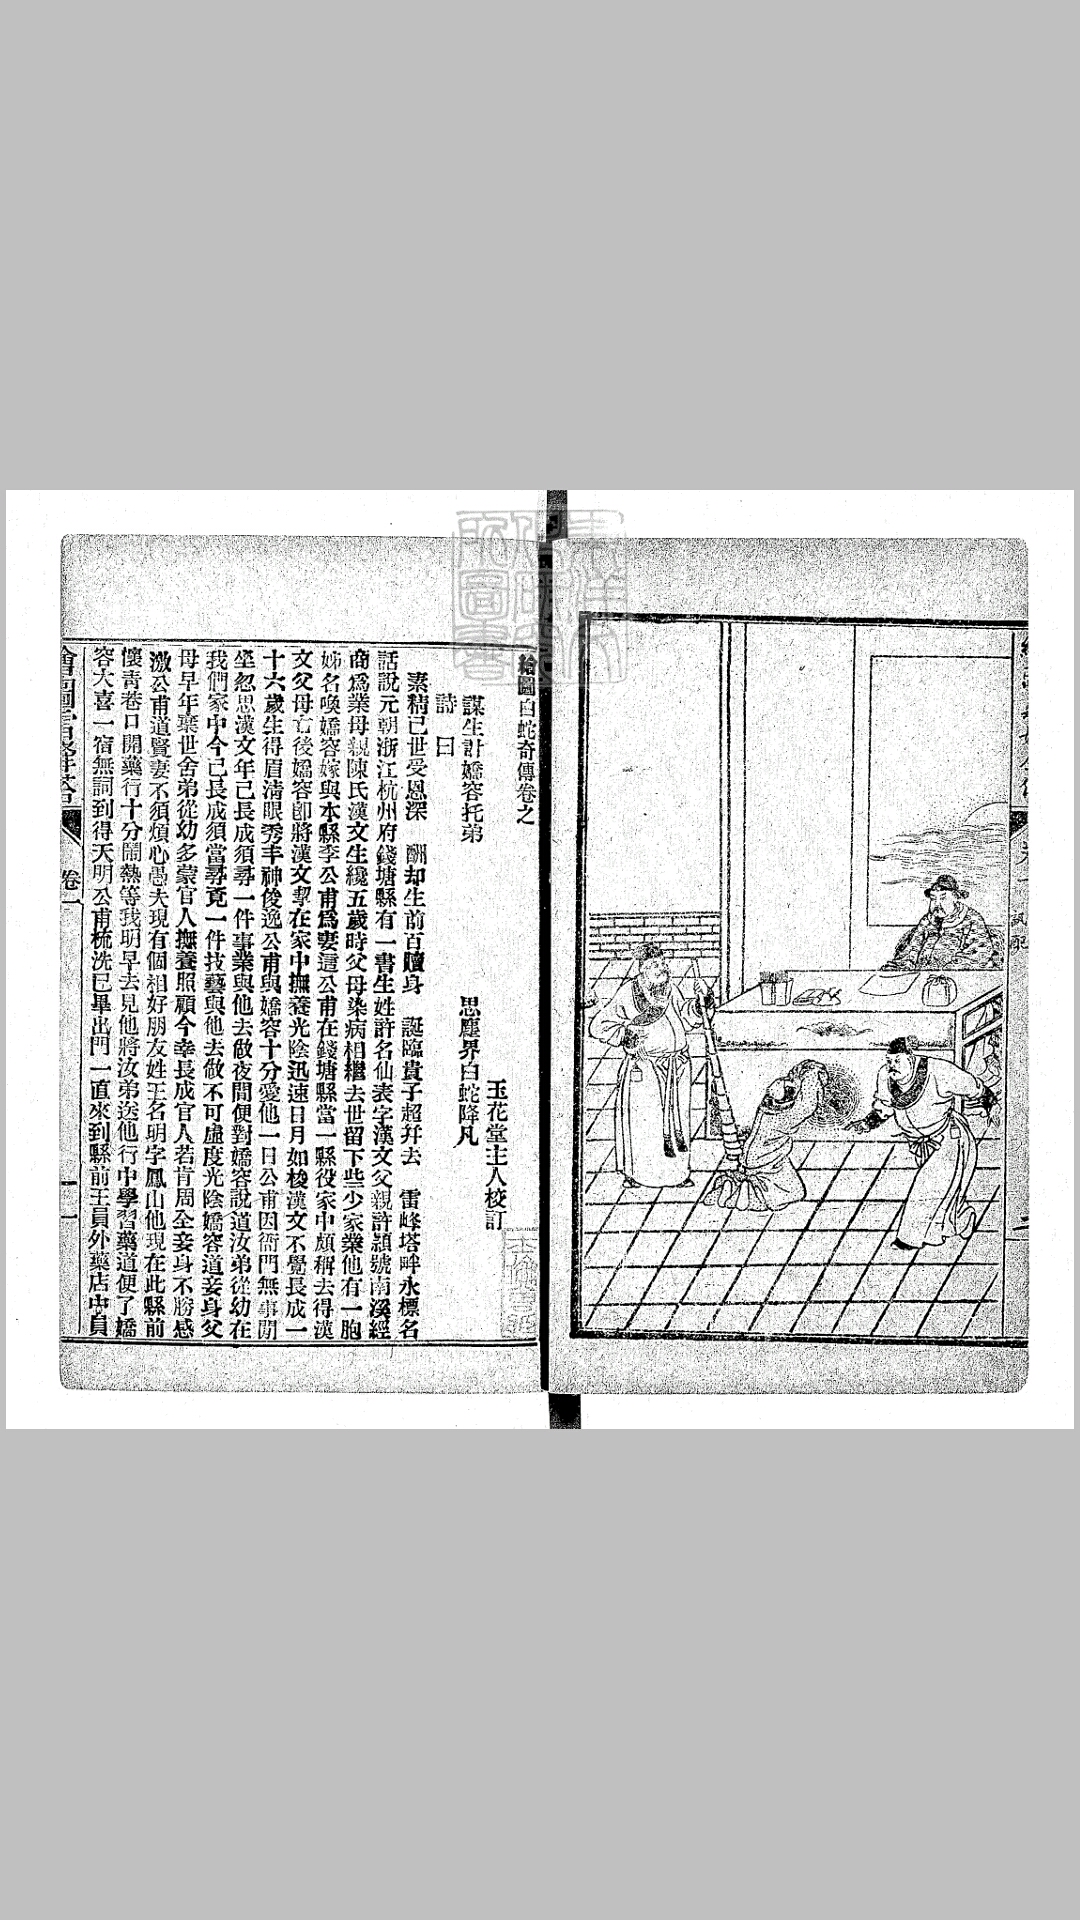 繪圖白蛇奇傳卷之
玉花堂主人校訂
謀生計嬌容托弟 思塵界白蛇降凡
詩曰
素精已世受恩深 酬却生前百贖身 誕臨貴子超升去 雷峰塔畔永標名
話說元朝浙江杭州府錢塘縣有一書生姓許名仙表字漢文父親許頴號南溪經
商爲業母親陳氏漢文生纔五歲時父母染病相繼去世留下些少家業他有一胞
姊名喚嬌容嫁與本縣李公甫爲妻這公甫在錢塘縣當一縣役家中頗稱去得漢
文父母亡後嬌容卽將漢文挈在家中撫養光陰迅速日月如梭漢文不覺長成一
十六歲生得眉清眼秀丰神俊逸公甫與嬌容十分愛他一日公甫因衙門無事閒
坐忽思漢文年已長成須尋一件事業與他去做夜間便對嬌容說道汝弟從幼在
我們家中今已長成須當尋覓一件技藝與他去做不可虛度光陰嬌容道妾身父
母早年棄世舍弟從幼多蒙官人撫養照顧今幸長成官人若肯周全妾身不勝感
激公甫道賢妻不須煩心愚夫現有個相好朋友姓王名明字鳳山他現在此縣前
懷青巷口開藥行十分鬧熱等我明早去見他將汝弟送他行中學習藥道便了嬌
容大喜一宿無詞到得天明公甫梳洗已畢出門一直來到縣前王員外藥店中員
卷一